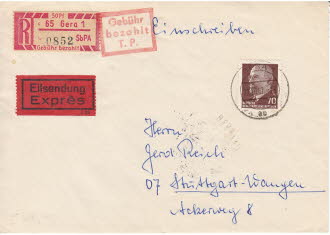 50 Pf
R 65 Gera 1
0852 SbPA
Gebühr bezahlt
Gebühr
bezahlt
T. P.
Einschreiben
Eilsendung
Exprès
70
Herrn
Gerd Reich
07 Stuttgart-Wangen
Ackerweg 8